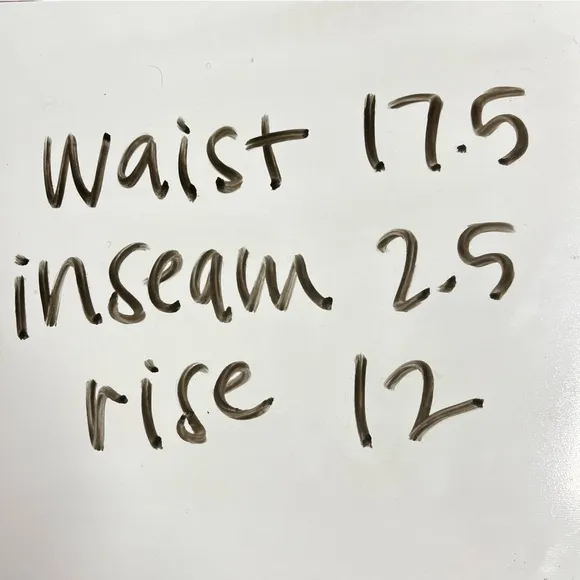 waist 17.5
inseam 2.5
rise 12